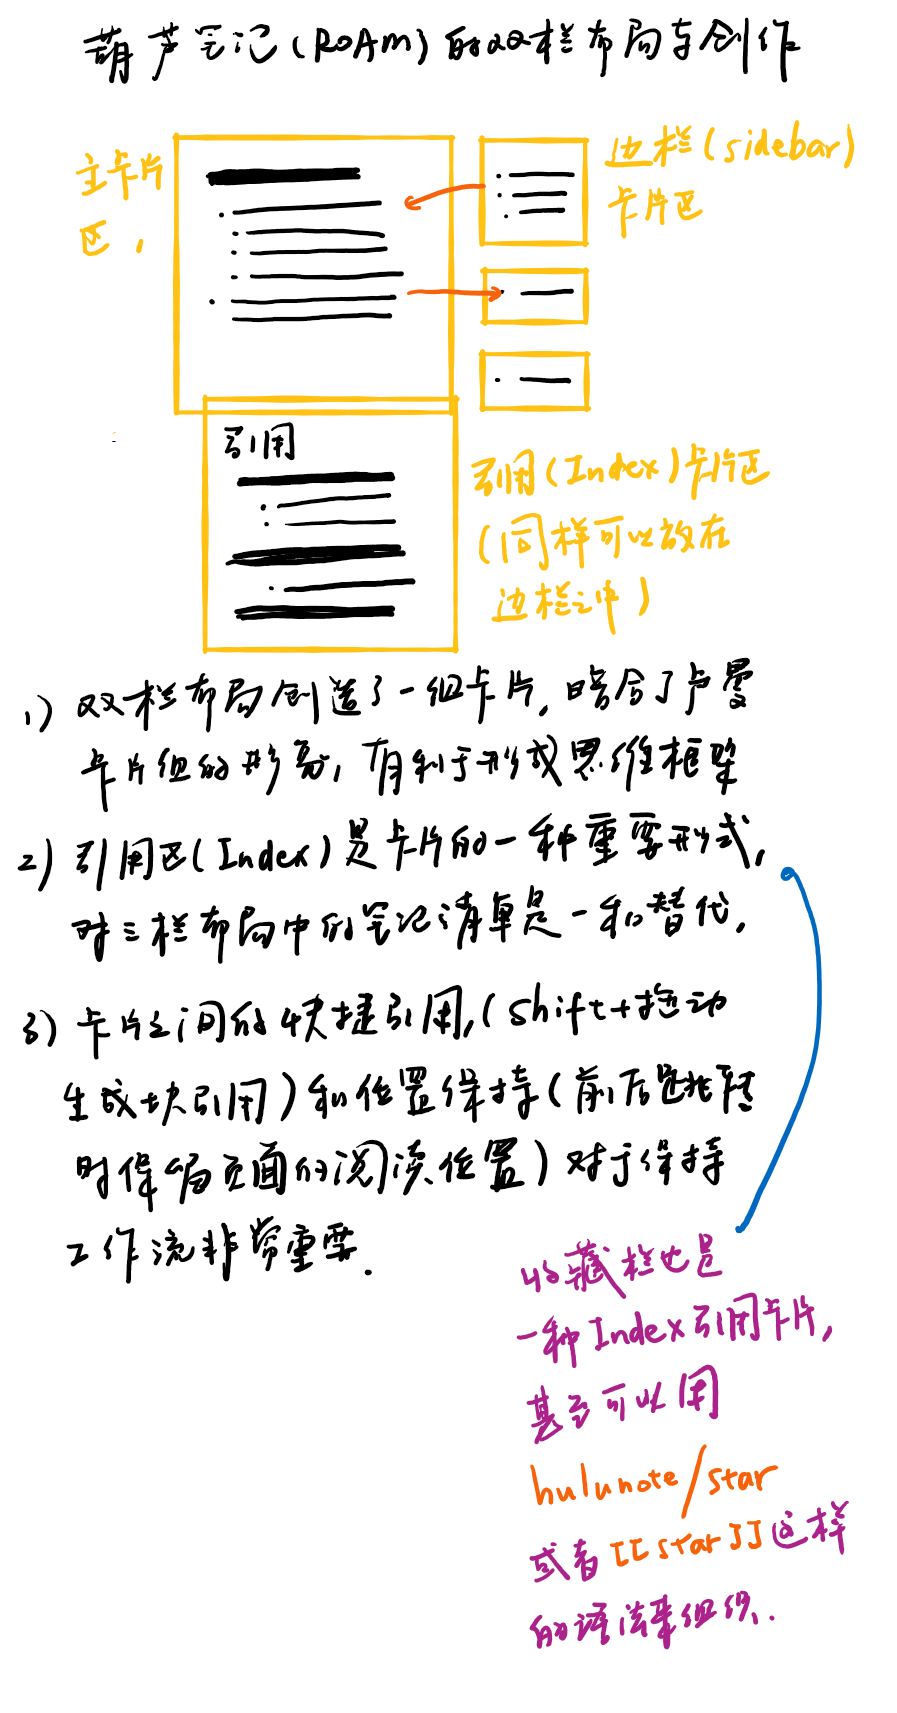 葫芦笔记(ROAm)的双栏布局与创作
主卡片
区,
边栏(sidebar)
卡片区
引用
引用(Index)卡片区
(同样可以放在
边栏之中)
1) 双栏布局创造了一组卡片,暗合了卢曼
卡片组的形态,有利于形成思维框架
2) 引用区(Index)是卡片的一种重要形式,
对三栏布局中的笔记清单是一种替代,
3) 卡片之间的快捷引用,(shift+拖动
生成块引用)和位置保持(前后跳转
时保留页面的阅读位置)对于保持
工作流非常重要.
收藏栏也是
一种Index引用卡片,
甚至可以用
hulunote/star
或者[[star]]这样
的语法来组织.